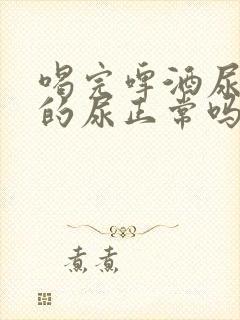 喝完啤酒尿
的尿正常吗
煮煮